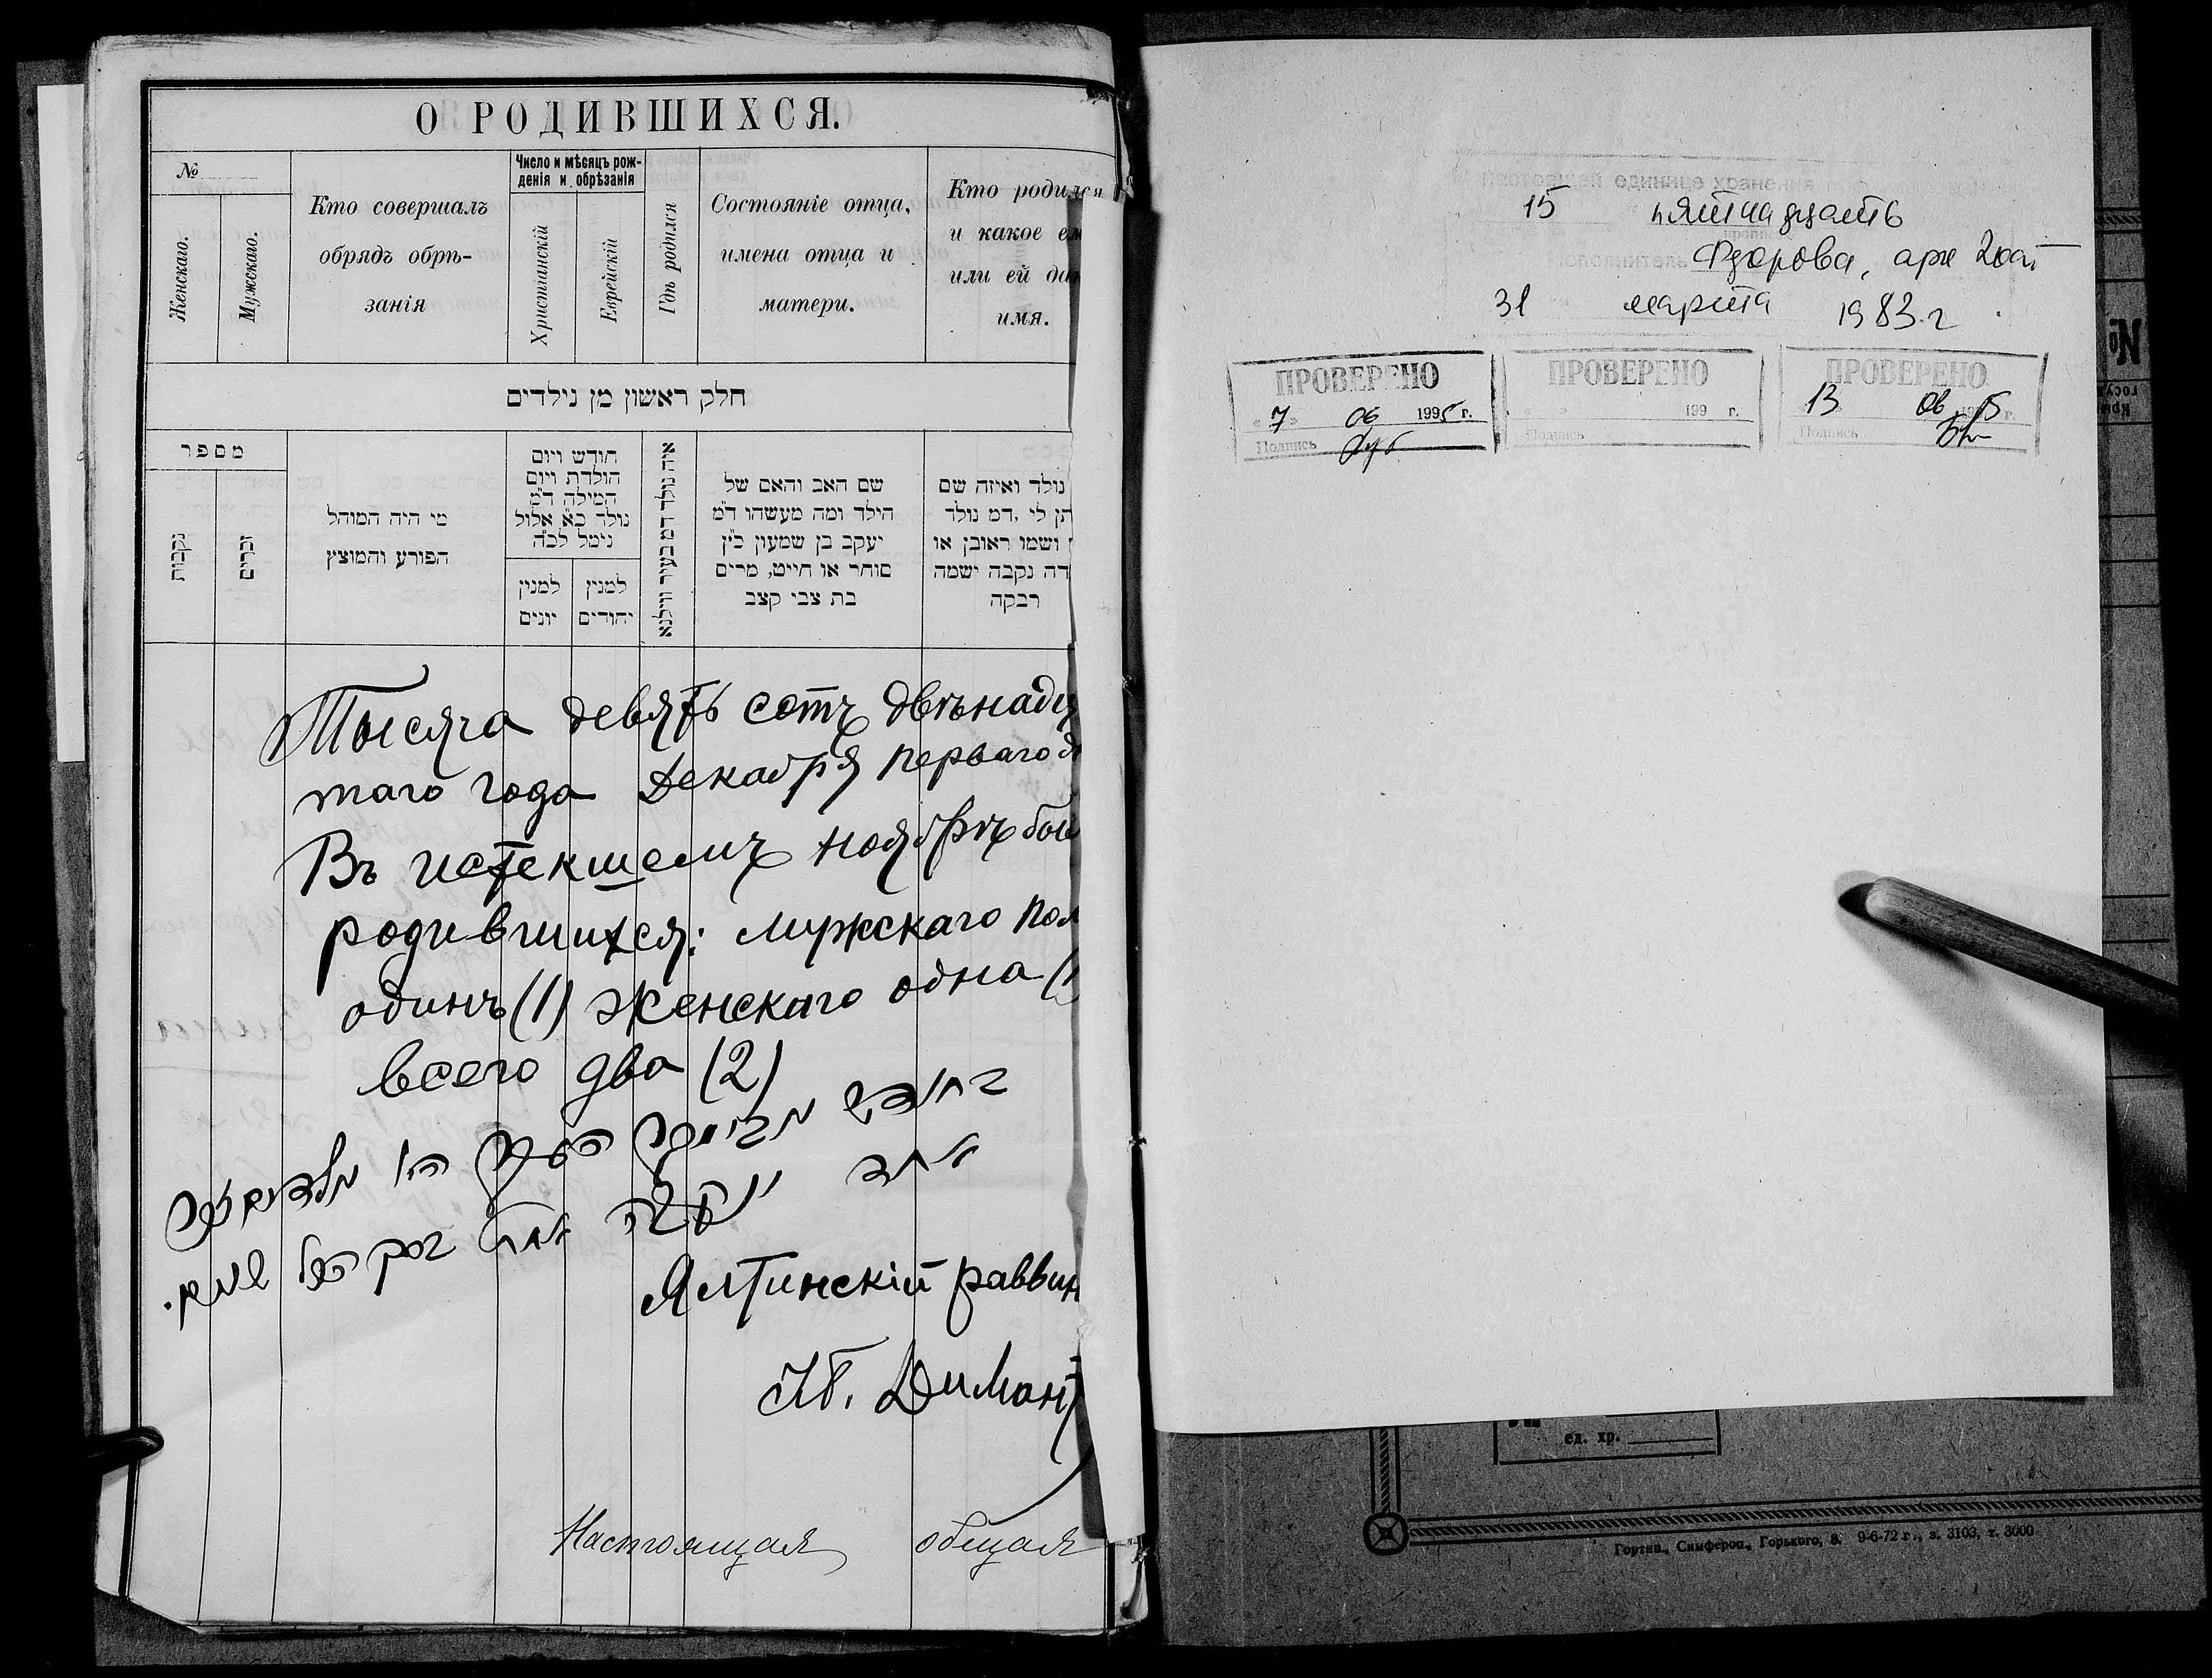 О РОДИВШИХСЯ.
№
Женскаго.
Мужскаго.
Кто совершалъ
обрядъ обрѣ-
занія
Число и мѣсяцъ рож-
денія и обрѣзанія
Христіанскій
Еврейскій
Гдѣ родился
Состояніе отца,
имена отца и
матери.
Кто родился
и какое ем
или ей да
имя.
חלק ראשון מן נילדים
מספר
נקבות
זכרים
מי היה המוהל
הפורע והמוצץ
חודש ויום
הולדת ויום
המילה ד״מ
נולד כ״א אלול
נימל לכ״ה
למנין
יונים
למנין
יהודים
איה נולד דמ בעיר ווילנא
שם האב והאם של
הילד ומה מעשהו ד״מ
יעקב בן שמעון כ״ץ
סוחר או חייט, מרים
בת צבי קצב
נולד ואיזה שם
תן לי ,דמ נולד
ושמו ראובן או
דה נקבה ישמה
רבקה
Тысяча девять сотъ двѣнадц
таго года Декабря перваго д
Въ истекшемъ ноябрѣ бы
родившихся: мужскаго пол
одинъ (1) женскаго одна (1
всего два (2)
אחד
Ялтинскій раввин
Димант
Настоящая общая
настоящей единице хранения
15 пятнадцать
прописью
Исполнитель Фдорова, арх
31 марта 1983 г.
ПРОВЕРЕНО
« 7 » 06 1995 г.
Подпись
ПРОВЕРЕНО
« » 199 г.
Подпись
ПРОВЕРЕНО
13 06 г.
Подпись
№
ед. хр.
Гортип., Симфероп., Горького, 8. 9-6-72 г., з. 3103, т. 3000